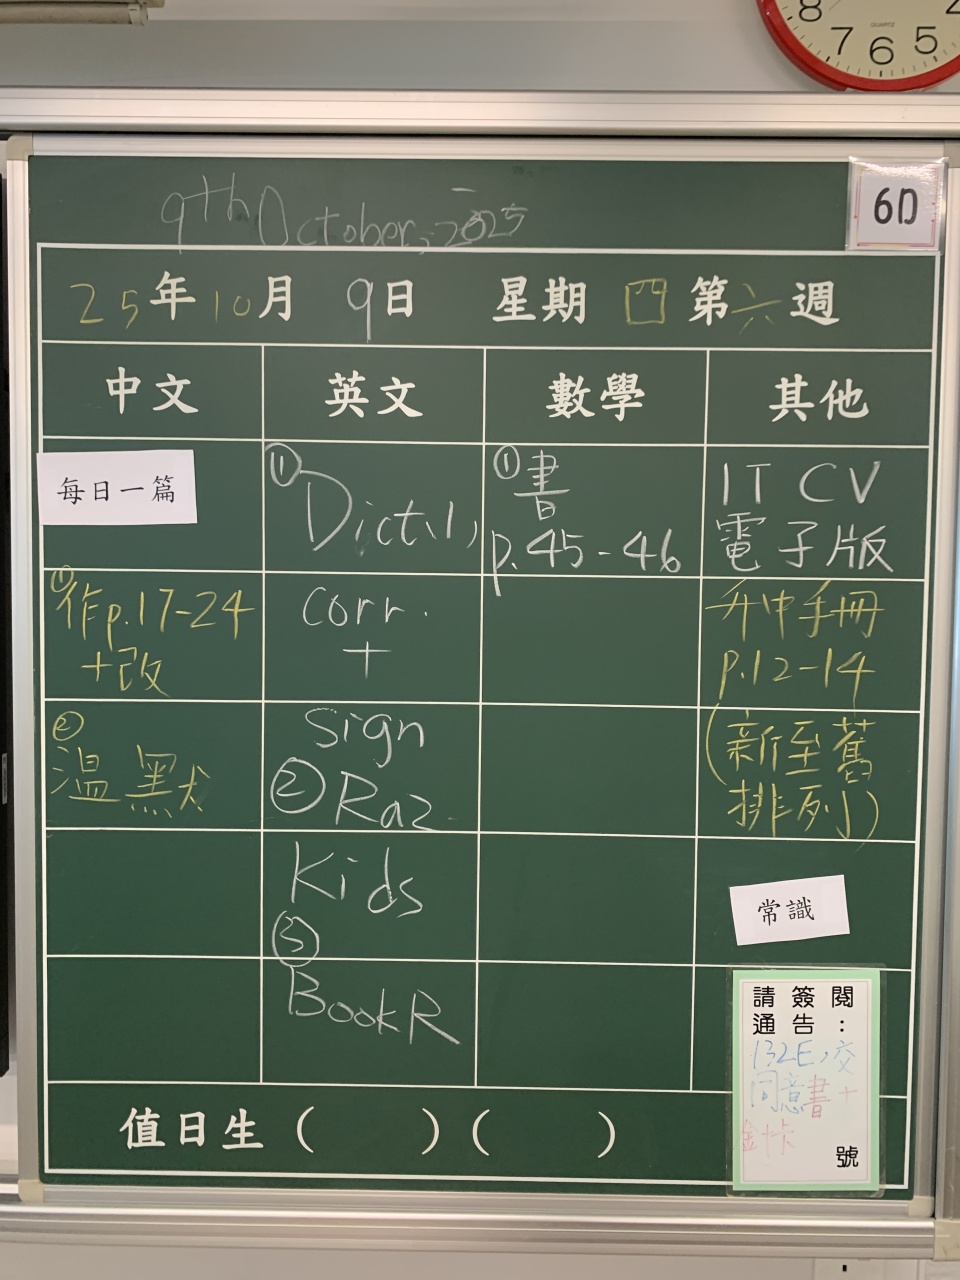 8 7 6 5 4
QUARTZ
6D
9th October, 2025
25年10月9日 星期四 第六週
中文
英文
數學
其他
每日一篇
①作p.17-24
+改
②
溫默
①
Dict(1)
corr.
+
Sign
②Raz
Kids
③
Book R
①書
p.45-46
IT CV
電子版
升中手冊
p.12-14
(新至舊
排列)
常識
請簽閱
通告:
132E,交
同意書+
號
值日生( )( )